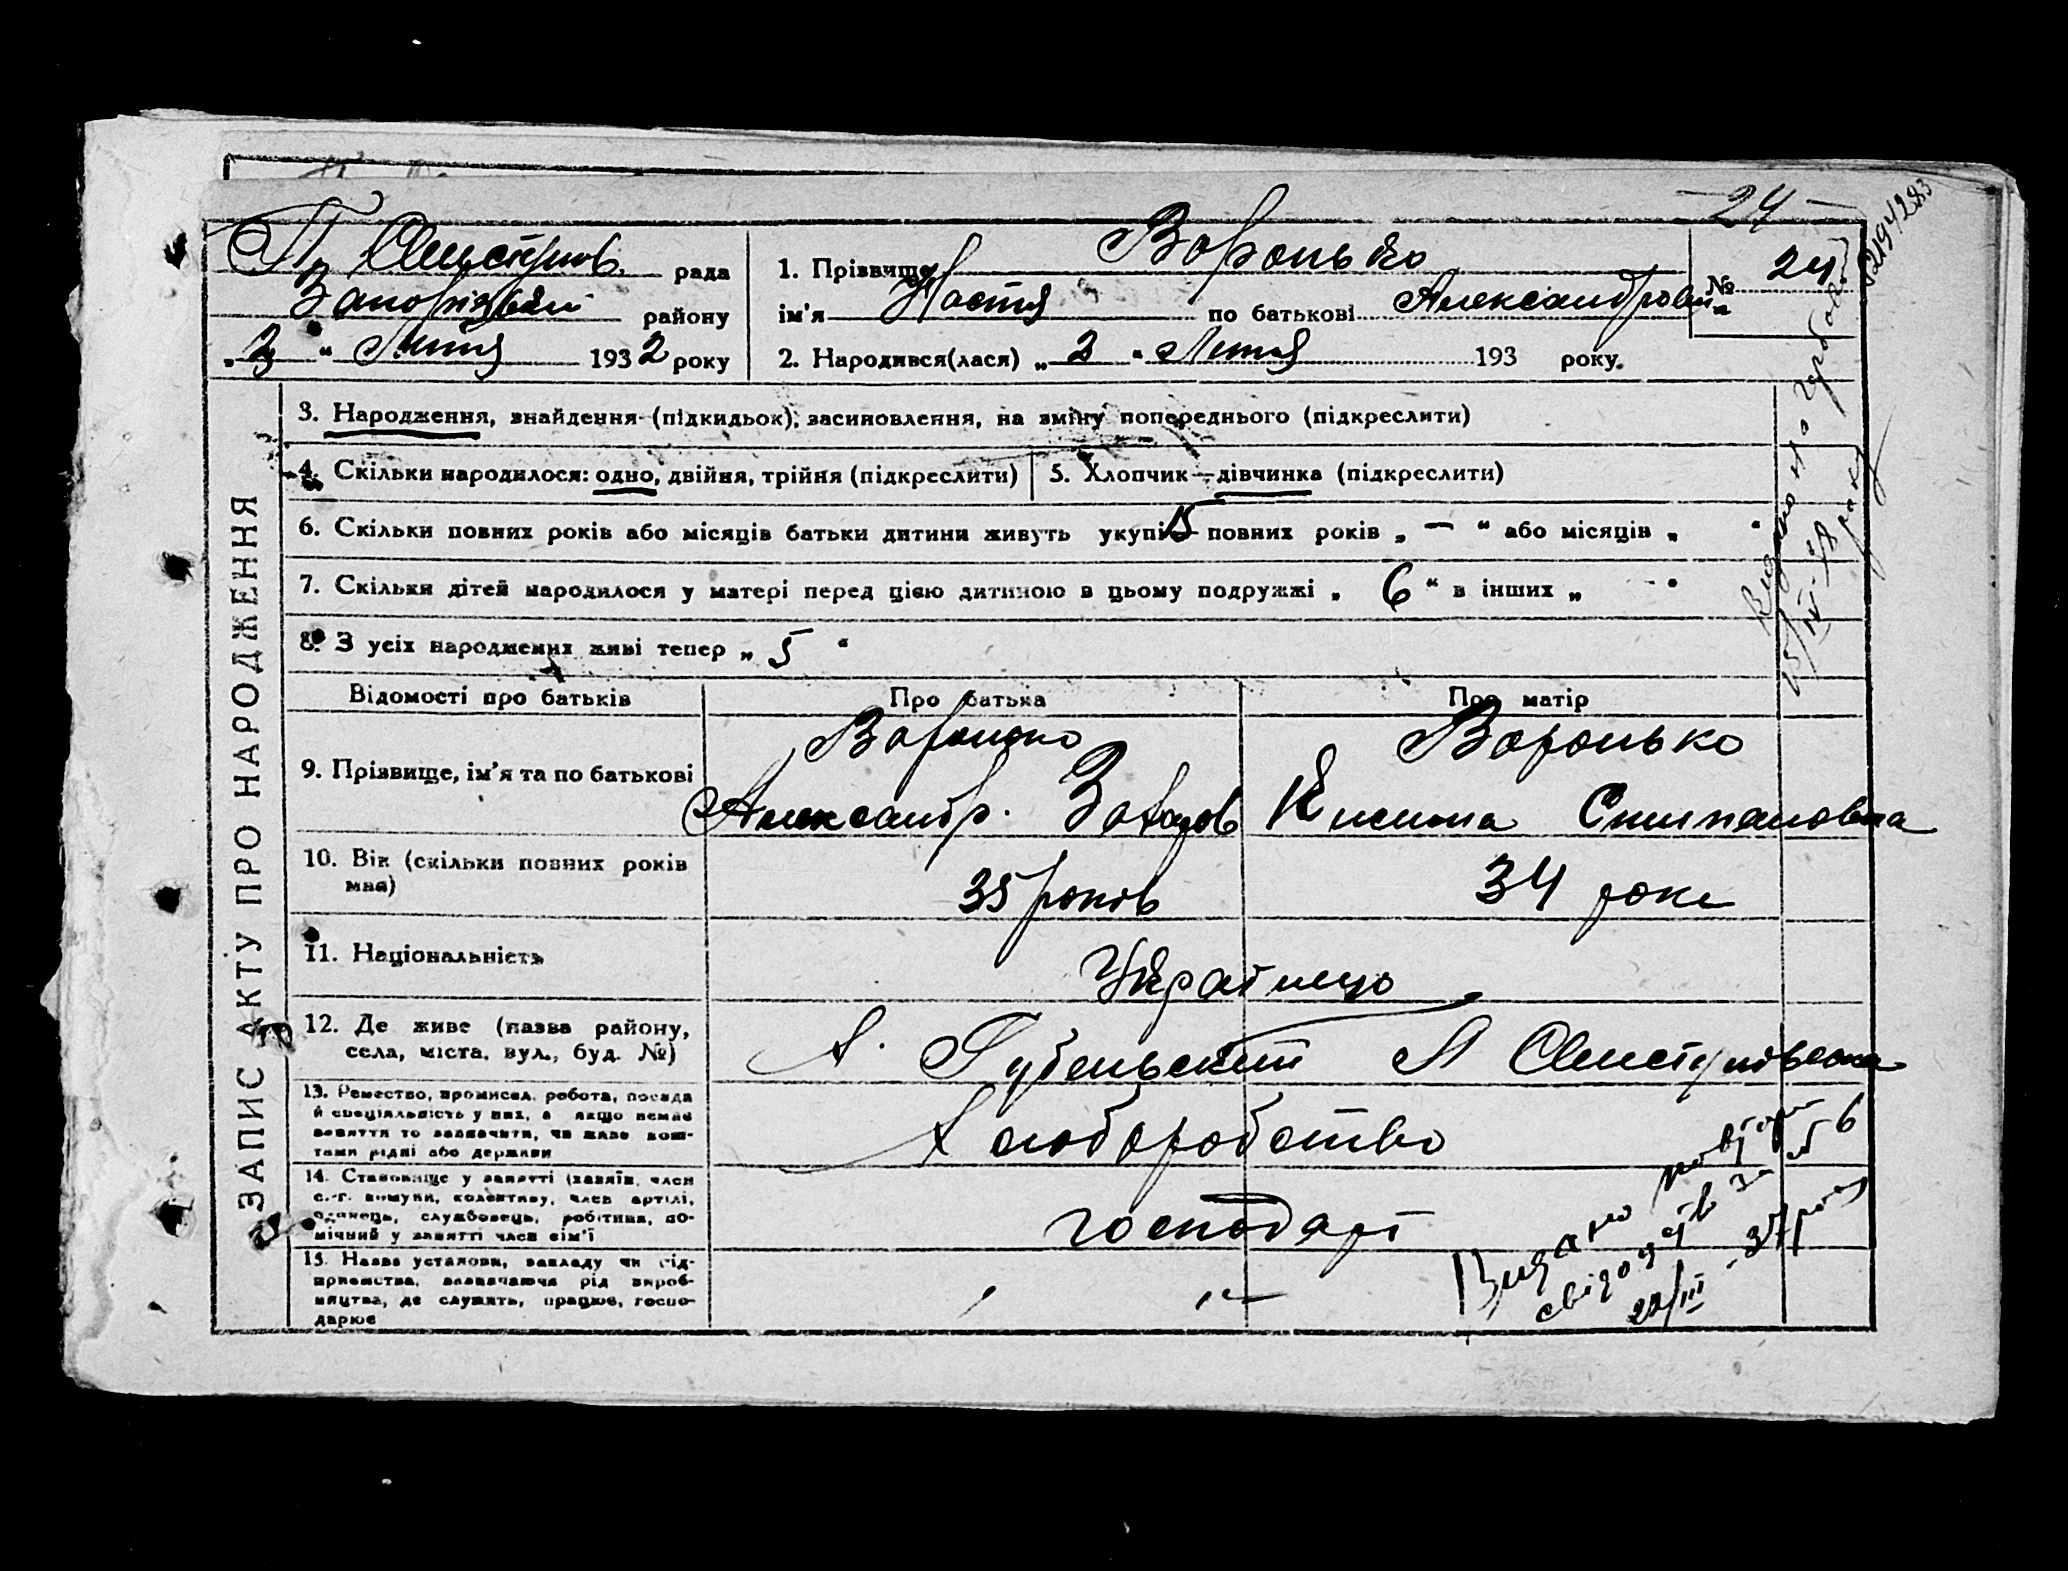 24
П. Олистрпов. рада
Запоріжськ. району
„ 2 “ Лютня 1932 року
1. Прізвище Воронько
ім'я Настя по батькові Александровн.
№ 24
2. Народився(лася) „ 2 “ Лютня 193 року.
3. Народження, знайдення (підкидьок), засиновлення, на зміну попереднього (підкреслити)
4. Скільки народилося: одно, двійня, трійня (підкреслити) 5. Хлопчик—дівчинка (підкреслити)
6. Скільки повних років або місяців батьки дитини живуть укупі 15 повних років „ — “ або місяців „ “
7. Скільки дітей народилося у матері перед цією дитиною в цьому подружжі „ 6 “ в інших „ - “
8. З усіх народжених живі тепер „ 5 “
ЗАПИС АКТУ ПРО НАРОДЖЕННЯ
Відомості про батьків Про батька Про матір
9. Прізвище, ім'я та по батькові
Воронько
Александр. Захаров
Воронько
Кисиния Стипановна
10. Вік (скільки повних років
мав)
35 років 34 роки
11. Національність
Україпцю
12. Де живе (назва району,
села, міста, вул., буд. №)
х. Губеньский
13. Ремество, промисел, робота, посада
й спеціяльність у них, а якщо немає
заняття то зазначити, чи живе кош-
тами рідні або держави
Хлоборобство
14. Становище у занятті (хазяїн, член
с.-г. комуни, колективу, член артілі,
одинець, службовець, робітник, по-
мічний у занятті член сім'ї
господарі
15. Назва установи, закладу чи під-
приємства, зазначаючи рід вироб-
ництва, де служить, працює, госпо-
дарює
Видано повторн
свідоцтв за № 56
22/III - 37 року
Видано
25/IV-38 року